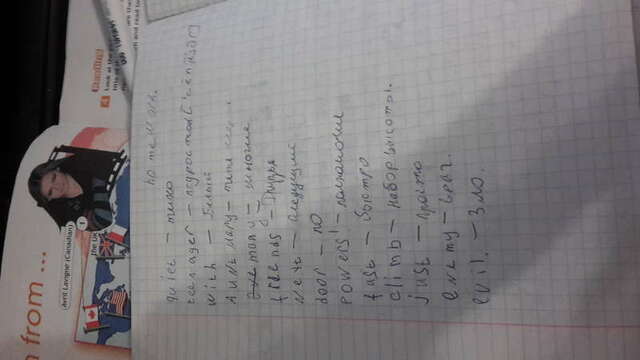 n from ...
Avril Lavigne (Canadian)
1
the UK
Reading
4 Look at the
title of
are the
ch and read to
home work.
quiet – тихо
teenager – подросток [ˈtēnˌijər]
with – Белый
Aunt Mary – тётя
many – многие
friends – Друзья
Next – следущий
door – по
powers' – полномочия
fast – быстро
climb – набор высоты.
just – просто
enemy – враг.
evil. – Зло.